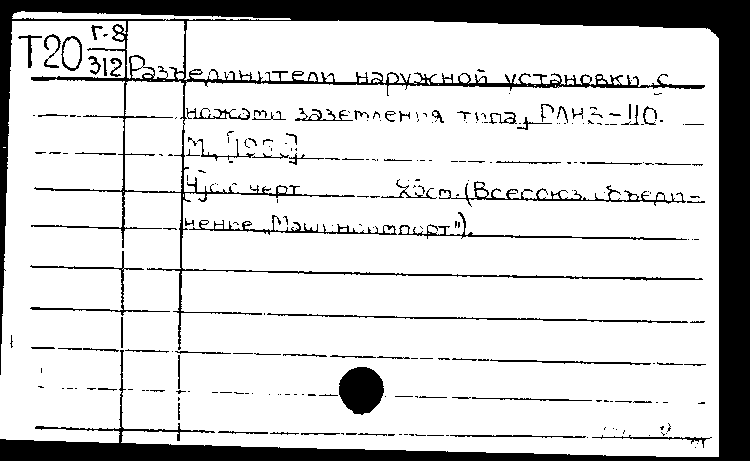 Т20 Г-8
312 Разъединители наружной установки с
ножами заземления типа РЛНЗ-110.
М., [1955].
[4] с. с черт. 25см. (Всесоюз. объеди-
нение „Машиноимпорт").